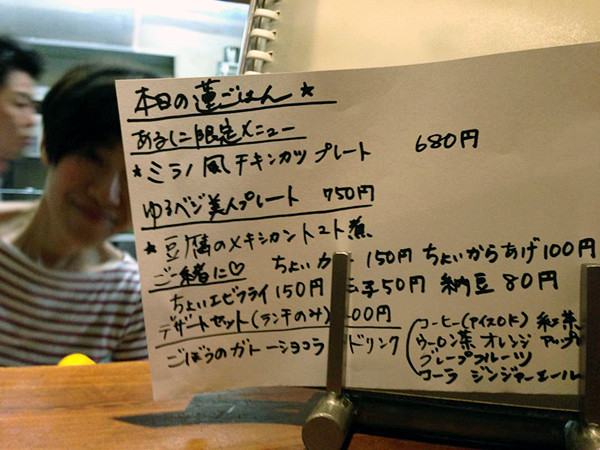 本日の蓮ごはん★
あるしに限定メニュー
★ミラノ風チキンカツプレート 680円
ゆるベジ美人プレート 750円
★豆腐のメキシカントマト煮
ご一緒に♡ ちょい 150円 ちょいからあげ100円
ちょいエビフライ150円 子50円 納豆80円
デザートセット(ランチのみ) 00円
ごぼうのガトーショコラ ドリンク
コーヒー(アイスOK) 紅茶
ウーロン茶 オレンジ アップル
グレープフルーツ
コーラ ジンジャーエール